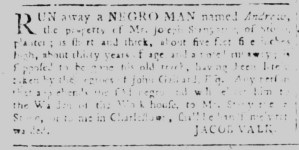 RUN away a NEGRO MAN named Andrew,
the property of Mr. Joseph Stanyarne, of Stono,
planter; is short and thick, about five feet five inches
high, about thirty years of age and a smel runaway; is
supposed to be gone his old track, having been lately
taken by the negroes of John Gaillard, Esq. Any person
that apprehends the said negro and will deliver him to
the Warden of the Work house, to Mr. Stanyarne at
Stono, or to me in Charlestown, shall be handsomely re-
warded. JACOB VALK.